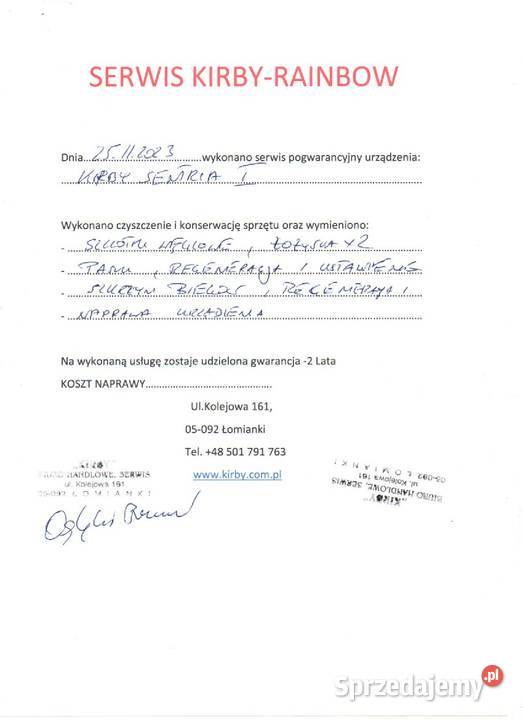 SERWIS KIRBY-RAINBOW
Dnia...25.11.2023...........wykonano serwis pogwarancyjny urządzenia:
KIRBY SENTRIA I
Wykonano czyszczenie i konserwację sprzętu oraz wymieniono:
- SZCZOTKI WĘGLOWE, ŁOŻYSKA x2
- PASKI, REGENERACJA I USTAWIENIE
- SKRZYNI BIEGÓW, REGENERACJA I
- NAPRAWA URZĄDZENIA
Na wykonaną usługę zostaje udzielona gwarancja -2 Lata
KOSZT NAPRAWY..........................................
Ul.Kolejowa 161,
05-092 Łomianki
Tel. +48 501 791 763
www.kirby.com.pl
"KIRBY"
BIURO HANDLOWE, SERWIS
ul. Kolejowa 161
05-092 ŁOMIANKI
"KIRBY"
BIURO HANDLOWE, SERWIS
ul. Kolejowa 161
05-092 ŁOMIANKI
Sprzedajemy.pl